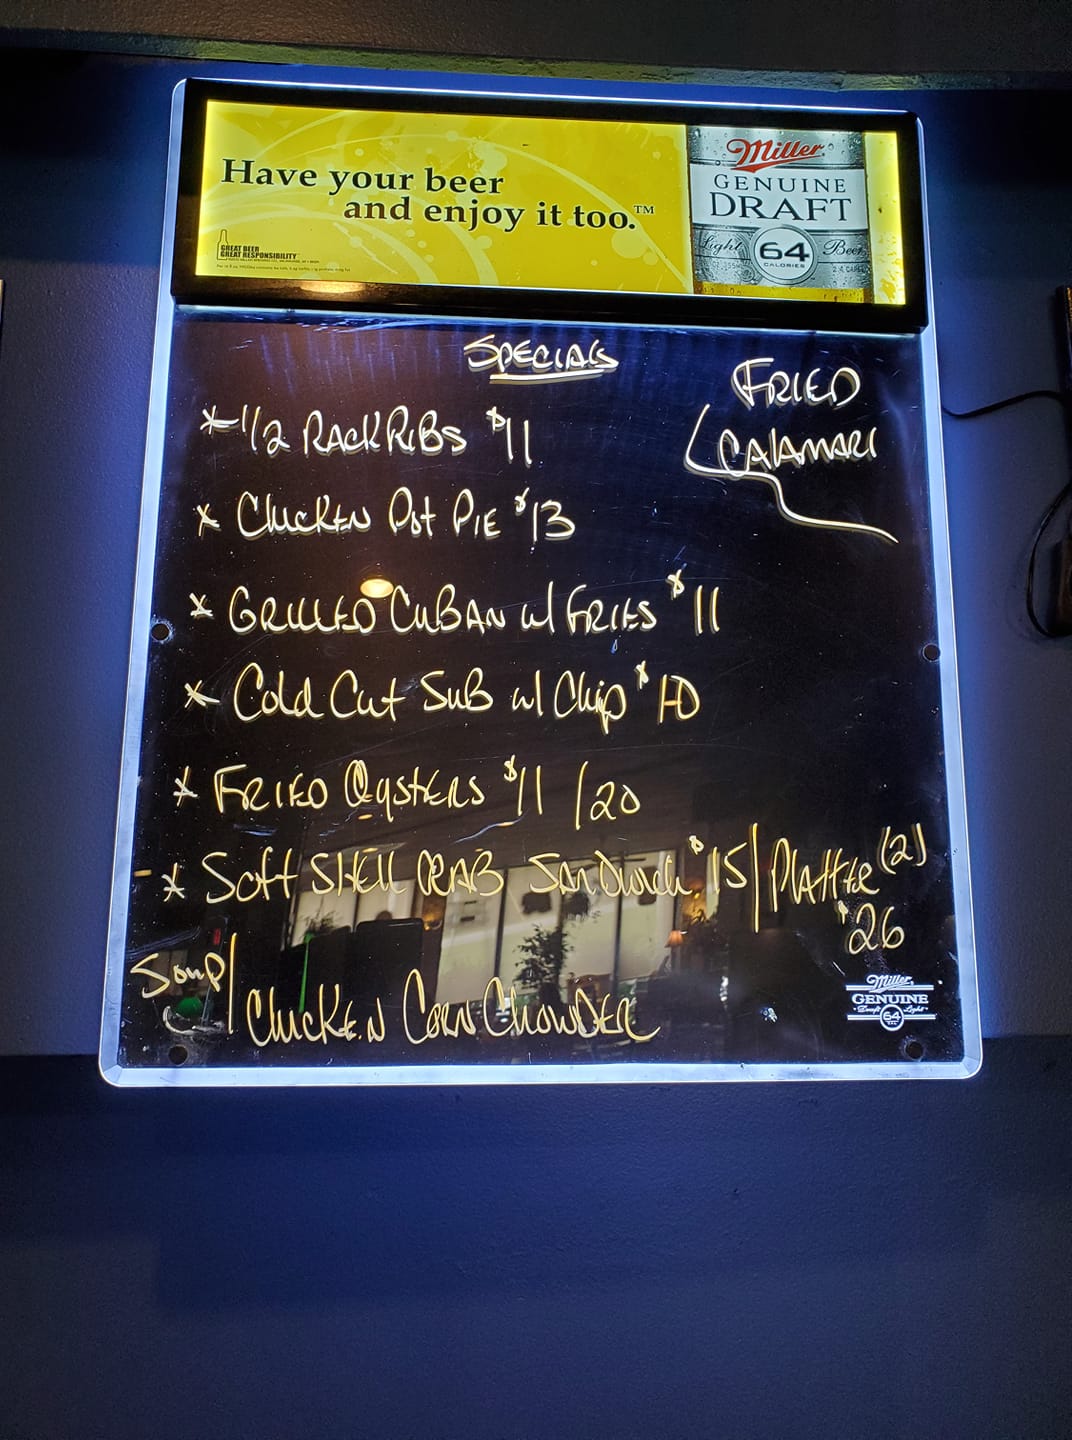 Have your beer
and enjoy it too.™
GREAT BEER
GREAT RESPONSIBILITY
Miller
GENUINE
DRAFT
Light 64 Beer
CALORIES
SPECIALS
FRIED
CALAMARI
* 1/2 RACK RIBS $11
* CHICKEN Pot PIE $13
* GRILLED CUBAN w/ FRIES $11
* Cold Cut SUB w/ Chip $10
* FRIED OysTERS $11 /20
* Soft SHEll CRAB SANDwich $15/ PlATTER (2)
$26
Soup/
CHICKEN CORN CHOWDER
Miller
GENUINE
Draft 64 Light